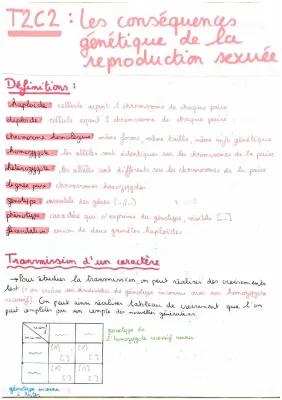 T2C2 : Les conséquences
génétique de la
reproduction sexuée
Définitions :
haploïde cellule ayant 1 chromosome de chaque paire
diploïde cellule ayant 2 chromosomes de chaque paire
chromosome homologue même forme, même taille, même info génétique
homozygote les allèles sont identiques sur les chromosomes de la paire
hétérozygote les allèles sont différents sur les chromosomes de la paire
lignée pure chromosomes homozygotes
génotype ensemble des gènes (..//..)
phénotype caractère qui s'exprime du génotype, visible [..]
fécondation union de deux gamètes haploïdes
Transmission d'un caractère
→ Pour étudier la transmission, on peut réaliser des croisements
test (= on croise un individu de génotype inconnu avec un homozygote
récessif). On peut ainsi réaliser tableau de croisement que l'on
peut compléter par un compte des nouvelles générations
génotype de
l'homozygote récessif connu
(//) (//)
[ ] [ ]
(//) (//)
[ ] [ ]
génotype inconnu
à tester